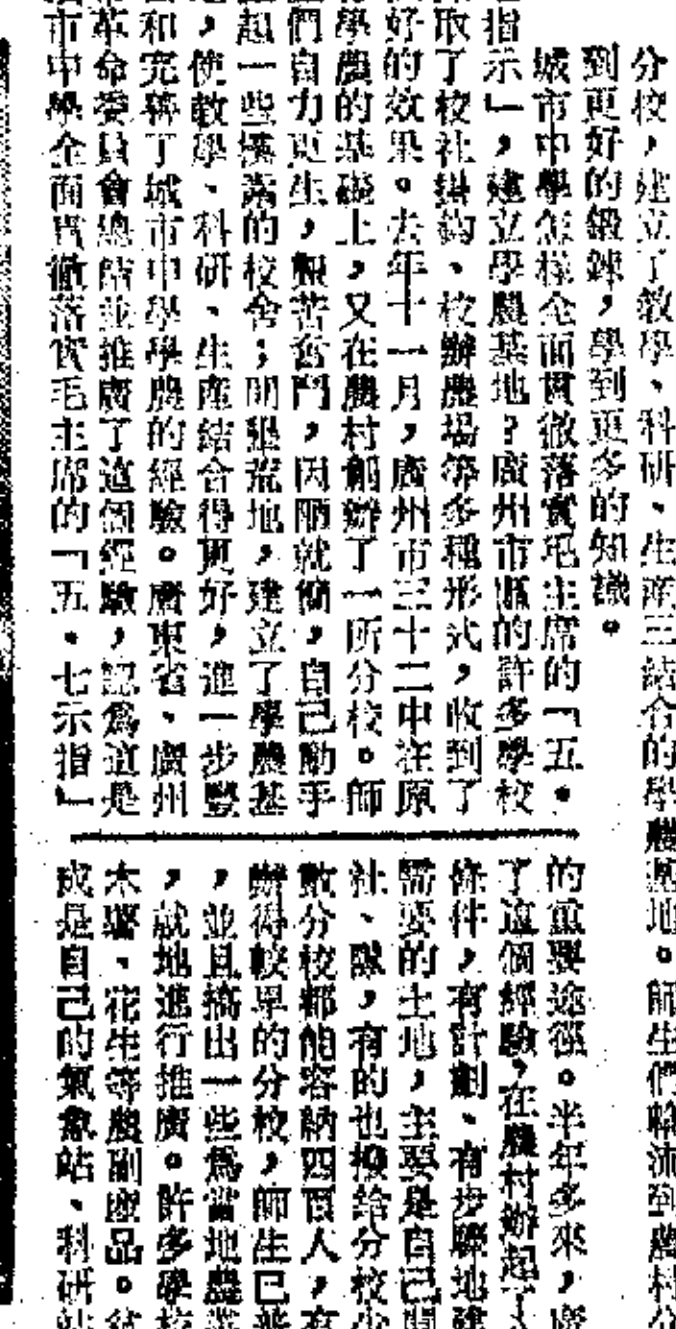 分校，建立了教學、科研、生產三結合的學農基地。師生們輪流到農村分
到更好的鍛鍊，學到更多的知識。
城市中學怎樣全面貫徹落實毛主席的「五·
指示」，建立學農基地？廣州市區的許多學校
取了校社掛鈎、校辦農場等多種形式，收到了
好的效果。去年十一月，廣州市三十二中在原
學農的基礎上，又在農村創辦了一所分校。師
們自力更生，艱苦奮鬥，因陋就簡，自己動手
起一些樸素的校舍；開墾荒地，建立了學農基
，使教學、科研、生產結合得更好，進一步豐
和完善了城市中學學農的經驗。廣東省、廣州
革命委員會總結並推廣了這個經驗，認爲這是
市中學全面貫徹落實毛主席的「五·七示指」
的重要途徑。半年多來，廣
了這個經驗，在農村辦起了
條件，有計劃、有步驟地建
需要的土地，主要是自己開
社、隊，有的也撥給分校少
數分校都能容納四百人，有
辦得較早的分校，師生已
，並且搞出一些爲當地農
，就地進行推廣。許多學校
木薯、花生等農副產品。
成是自己的氣象站、科研站